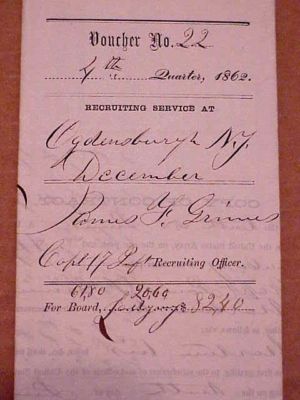 Voucher No. 22
4th Quarter, 1862.
RECRUITING SERVICE AT
Ogdensburgh N.Y.
December
James F. Grimes
Capt 17 Inft Recruiting Officer.
6180 2060
For Board, Lodging 8240